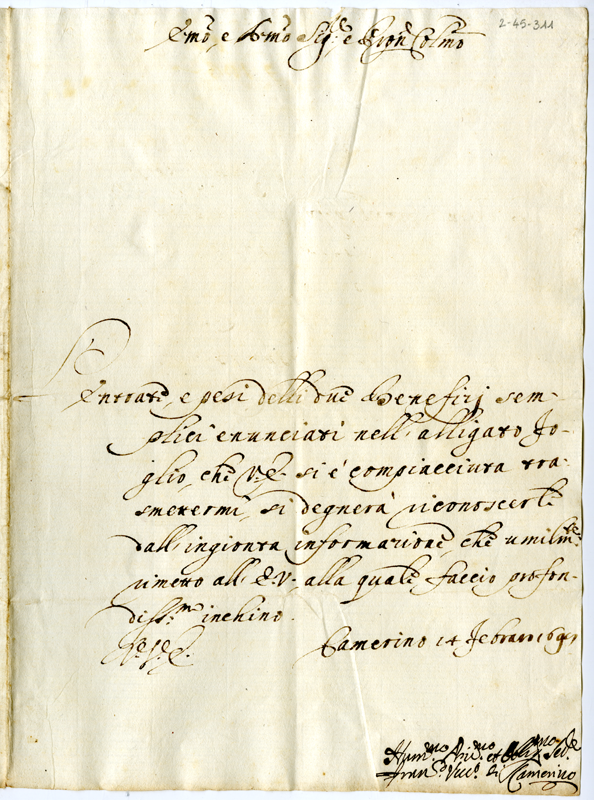 2-45-311
Em̃o, e Rm̃o Sig.r e Pron Colm̃o
Entrate, e pesi delli due Benefizj sem-
plici enunciati nell'alligato fo-
glio, che V.E. si è compiacciuta tra-
smetermi, si degnerà riconoscerli
dall'ingionta informazione, che umilm.te
rimetto all'E.V., alla quale faccio profon-
diss.mo inchino.
Camerino 14 Febraro
Hum.mo Div.mo et Obl.mo Ser.e
Fran.co Vesc.o di Camerino